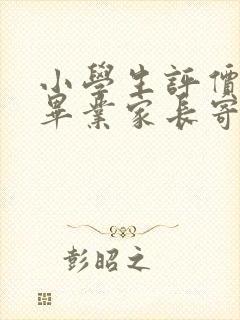 小學生評價
畢業家長寄
彭昭之